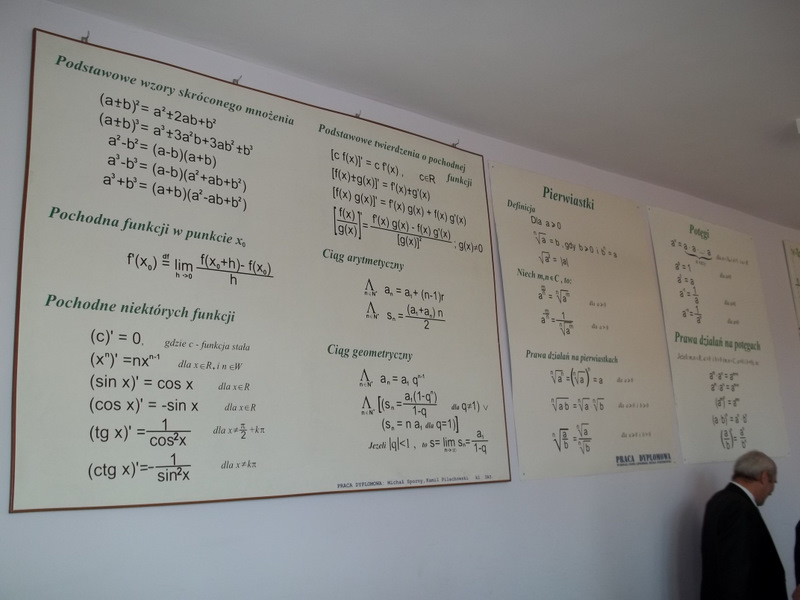 Podstawowe wzory skróconego mnożenia
(a±b)²= a²±2ab+b²
(a±b)³= a³±3a²b+3ab²±b³
a²-b²= (a-b)(a+b)
a³-b³= (a-b)(a²+ab+b²)
a³+b³= (a+b)(a²-ab+b²)
Pochodna funkcji w punkcie x₀
f'(x₀) ≝ lim h→0 f(x₀+h)- f(x₀) / h
Pochodne niektórych funkcji
(c)' = 0, gdzie c - funkcja stała
(xⁿ)' =nxⁿ⁻¹ dla x∈R, i n∈W
(sin x)' = cos x dla x∈R
(cos x)' = -sin x dla x∈R
(tg x)'= 1/cos²x dla x≠ π/2 +kπ
(ctg x)'=- 1/sin²x dla x≠kπ
Podstawowe twierdzenia o pochodnej
funkcji
[c f(x)]' = c f'(x) , c∈R
[f(x)±g(x)]' = f'(x)±g'(x)
[f(x) g(x)]' = f'(x) g(x) + f(x) g'(x)
[f(x)/g(x)]' = f'(x) g(x) - f(x) g'(x) / [g(x)]² ; g(x)≠0
Ciąg arytmetyczny
Λ n∈N⁺ aₙ = a₁+ (n-1)r
Λ n∈N⁺ sₙ = (a₁+aₙ) n / 2
Ciąg geometryczny
Λ n∈N⁺ aₙ = a₁ qⁿ⁻¹
Λ n∈N⁺ [(sₙ = a₁(1-qⁿ) / 1-q dla q≠1) ∨
(sₙ = n a₁ dla q=1)]
Jeżeli |q|<1 , to s= lim n→∞ sₙ = a₁ / 1-q
PRACA DYPLOMOWA Michał Sporny, Kamil Pilachowski
Pierwiastki
Definicja
Dla a≥0
ⁿ√a = b , gdy b≥0 i bⁿ = a
√a² = |a|
Niech m,n∈C , to:
Prawa działań na pierwiastkach
ⁿ√ab = ⁿ√a ⁿ√b
ⁿ√(a/b) = ⁿ√a / ⁿ√b
PRACA DYPLOMOWA
Potęgi
a⁰ = 1
a¹ = a
Prawa działań na potęgach